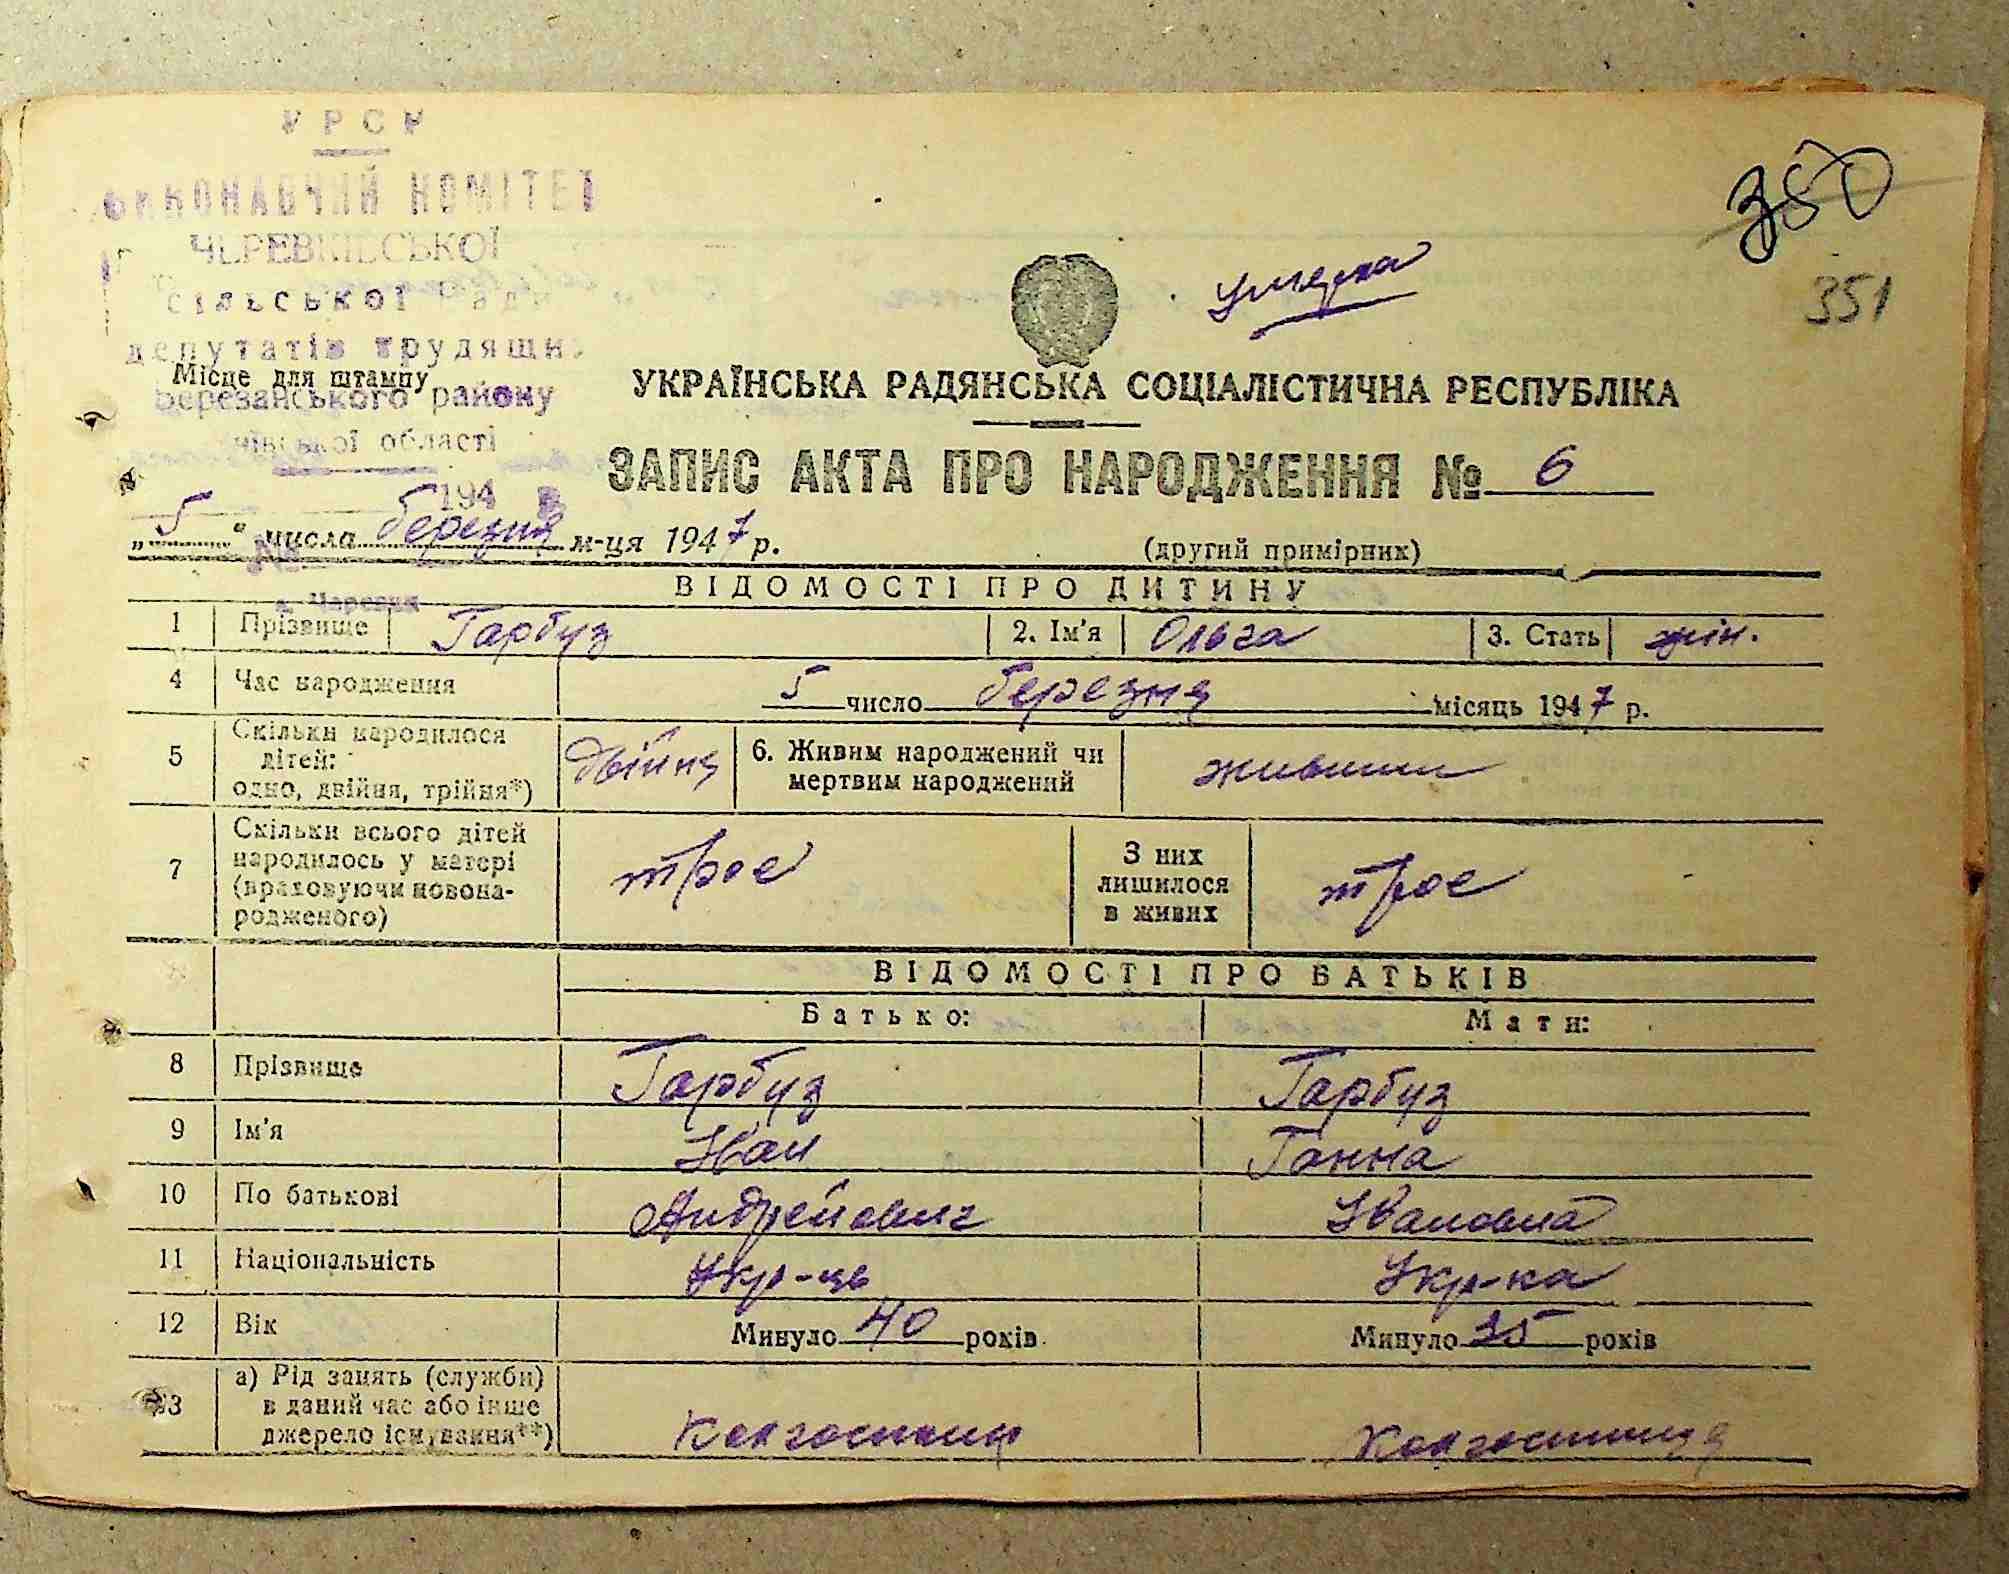 УРСР
ВИКОНАВЧИЙ КОМІТЕТ
ЧЕРЕВКІВСЬКОЇ
сільської Ради
депутатів трудящих
Місце для штампу
Березанського району
області
194
350
351
Умерла
УКРАЇНСЬКА РАДЯНСЬКА СОЦІАЛІСТИЧНА РЕСПУБЛІКА
ЗАПИС АКТА ПРО НАРОДЖЕННЯ № 6
„5“ числа березня м-ця 1947 р. (другий примірник)
ВІДОМОСТІ ПРО ДИТИНУ
1 Прізвище Гарбуз 2. Ім'я Ольга 3. Стать жін.
4 Час народження 5 число березня місяць 1947 р.
5 Скільки народилося дітей: одно, двійня, трійня*) двійня 6. Живим народжений чи мертвим народжений живими
7 Скільки всього дітей народилось у матері (враховуючи новонародженого) троє З них лишилося в живих троє
ВІДОМОСТІ ПРО БАТЬКІВ
Батько: Мати:
8 Прізвище Гарбуз Гарбуз
9 Ім'я Іван Ганна
10 По батькові Андрейович Івановна
11 Національність Укр-ць Укр-ка
12 Вік Минуло 40 років Минуло 35 років
13 а) Рід занять (служби) в даний час або інше джерело існування**) Колгоспник Колгоспниця